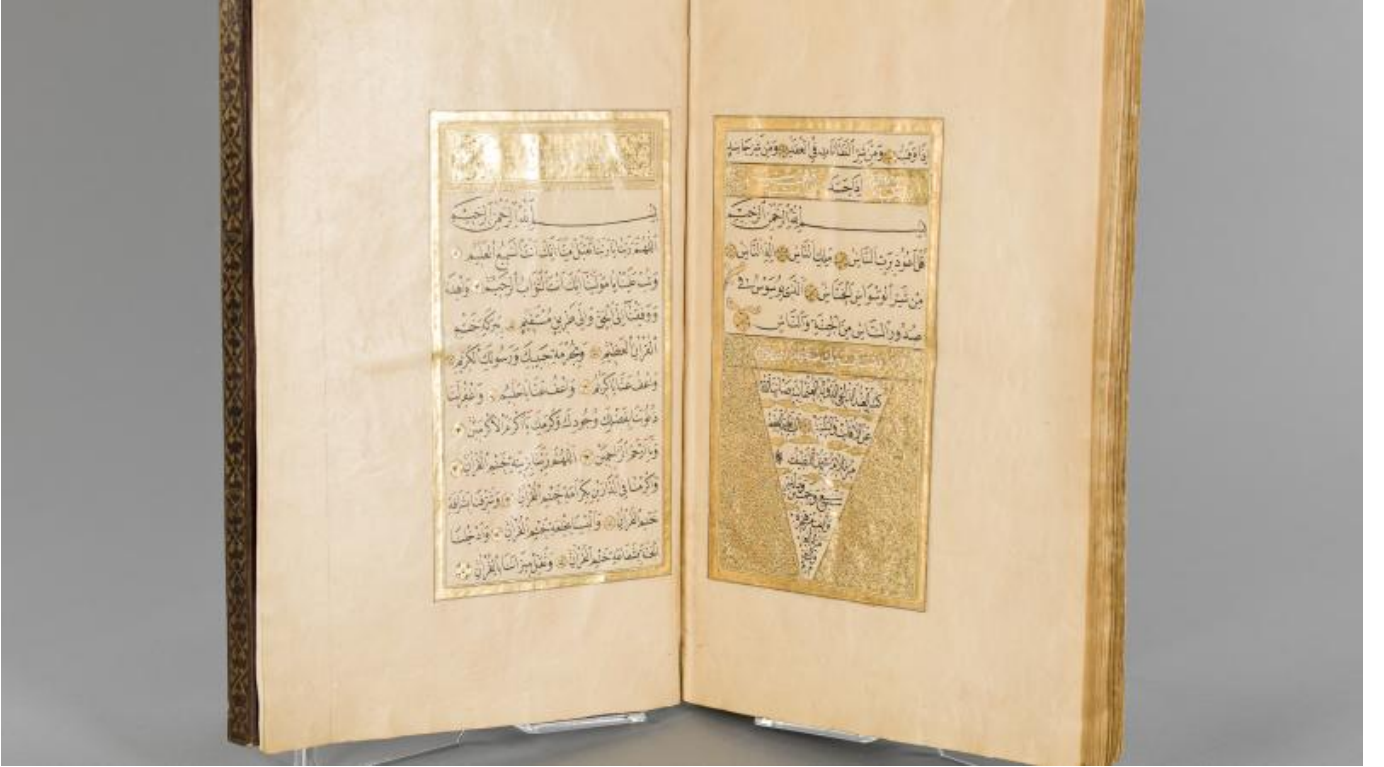 اِذَا وَقَبَ وَمِنْ شَرِّ النَّفَّاثَاتِ فِي الْعُقَدِ وَمِنْ شَرِّ حَاسِدٍ
اِذَا حَسَدَ
بِسْمِ اللّٰهِ الرَّحْمٰنِ الرَّحِيمِ
قُلْ اَعُوذُ بِرَبِّ النَّاسِ مَلِكِ النَّاسِ اِلٰهِ النَّاسِ
مِنْ شَرِّ الْوَسْوَاسِ الْخَنَّاسِ الَّذِي يُوَسْوِسُ فِي
صُدُورِ النَّاسِ مِنَ الْجِنَّةِ وَالنَّاسِ
عن الآفات والبلية
بِسْمِ اللّٰهِ الرَّحْمٰنِ الرَّحِيمِ
اَللّٰهُمَّ رَبَّنَا يَا رَبَّنَا تَقَبَّلْ مِنَّا اِنَّكَ اَنْتَ السَّمِيعُ الْعَلِيمُ
وَتُبْ عَلَيْنَا يَا مَوْلٰينَا اِنَّكَ اَنْتَ التَّوَّابُ الرَّحِيمُ وَاهْدِنَا
وَوَفِّقْنَا اِلَى الْحَقِّ وَاِلٰى طَرِيقٍ مُسْتَقِيمٍ بِبَرَكَةِ خَتْمِ
الْقُرْاٰنِ الْعَظِيمِ وَبِحُرْمَةِ حَبِيبِكَ وَرَسُولِكَ الْكَرِيمِ
وَاعْفُ عَنَّا يَا كَرِيمُ وَاعْفُ عَنَّا يَا رَحِيمُ وَاغْفِرْ لَنَا
ذُنُوبَنَا بِفَضْلِكَ وَجُودِكَ وَكَرَمِكَ يَا اَكْرَمَ الْاَكْرَمِينَ
وَيَا اَرْحَمَ الرَّاحِمِينَ اَللّٰهُمَّ زَيِّنَّا بِزِينَةِ خَتْمِ الْقُرْاٰنِ
وَكَرِّمْنَا فِي الدَّارَيْنِ بِكَرَامَةِ خَتْمِ الْقُرْاٰنِ وَشَرِّفْنَا بِشَرَافَةِ
خَتْمِ الْقُرْاٰنِ وَاَلْبِسْنَا بِخِلْعَةِ خَتْمِ الْقُرْاٰنِ وَاَدْخِلْنَا
الْجَنَّةَ بِشَفَاعَةِ خَتْمِ الْقُرْاٰنِ وَثَقِّلْ مِيزَانَنَا بِالْقُرْاٰنِ